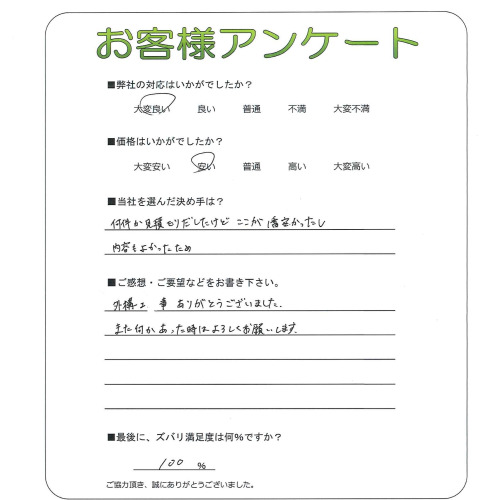 お客様アンケート
■弊社の対応はいかがでしたか？
大変良い 良い 普通 不満 大変不満
■価格はいかがでしたか？
大変安い 安い 普通 高い 大変高い
■当社を選んだ決め手は？
何件か見積もりだしたけど ここが1番安かったし
内容もよかったため
■ご感想・ご要望などをお書き下さい。
外構工事 ありがとうございました.
また何かあった時はよろしくお願いします.
■最後に、ズバリ満足度は何%ですか？
100 %
ご協力頂き、誠にありがとうございました。